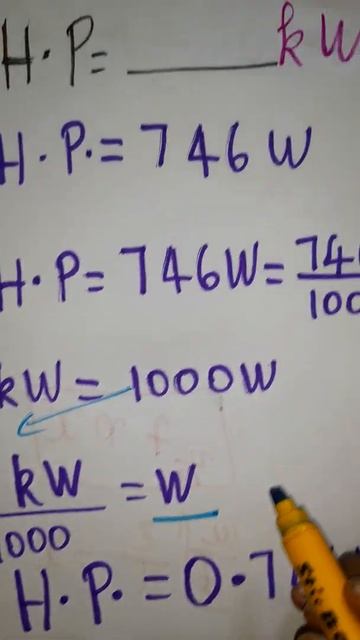 H.P= ____ kW
H.P.= 746 W
H.P= 746W= 74 / 100
kW = 1000W
kW / 1000 = W
H.P. = 0.7